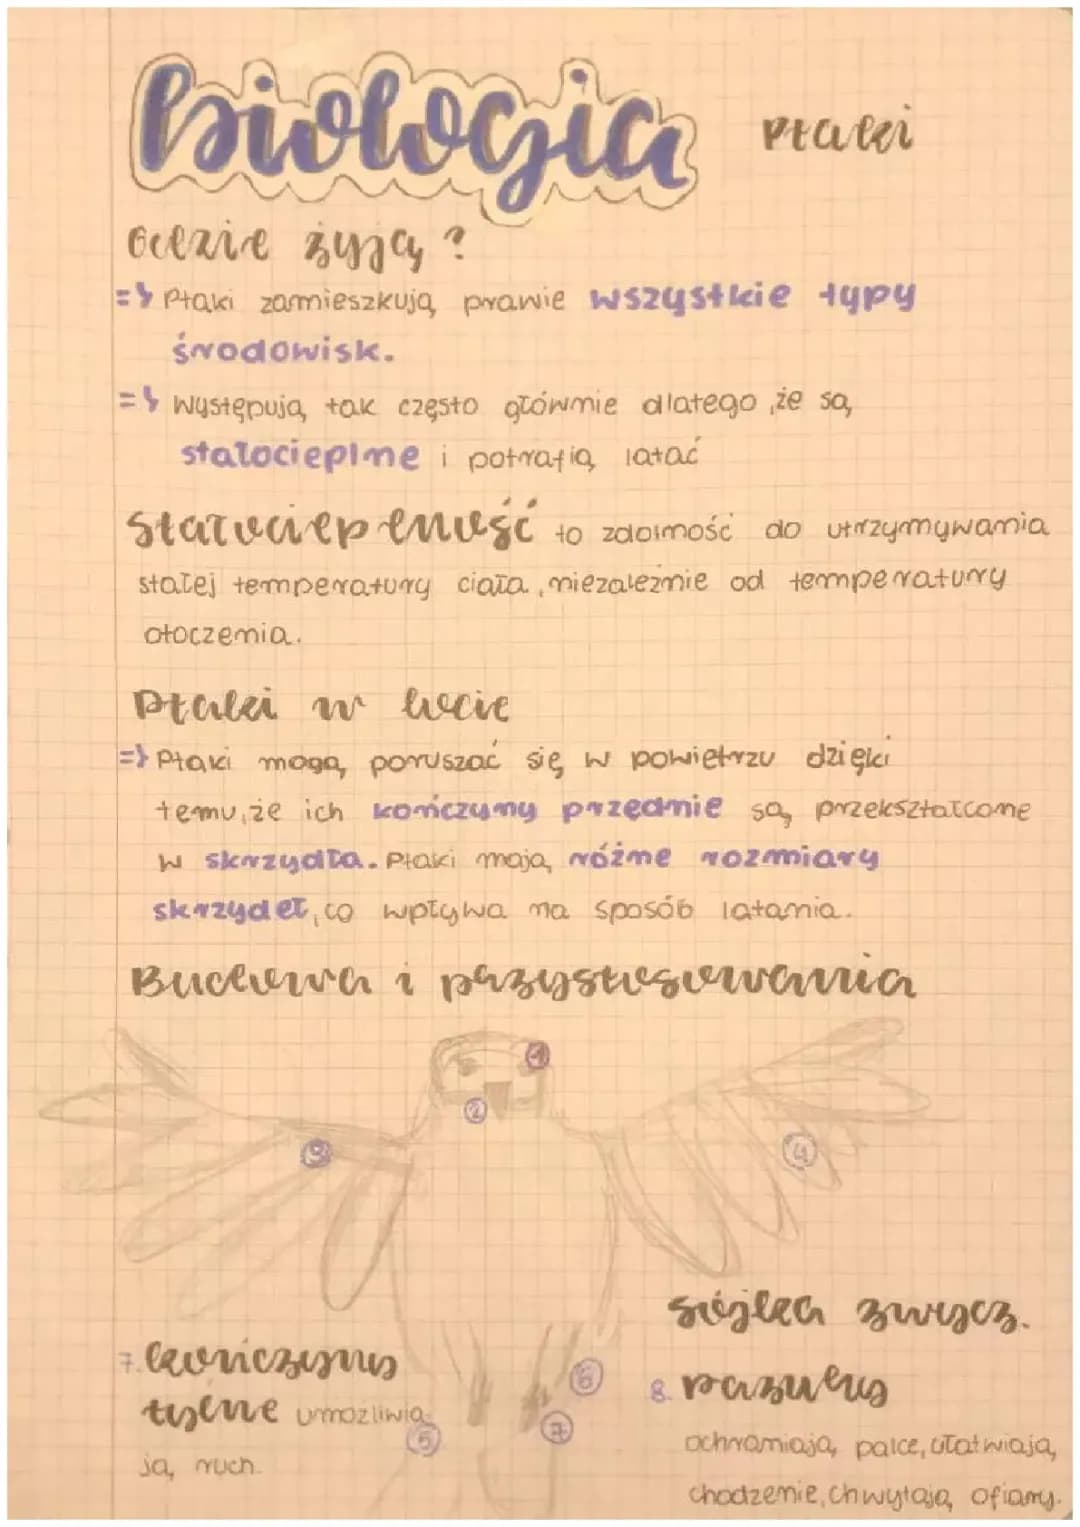 Biologia
Ptaki
Gdzie żyją?
=> Ptaki zamieszkują prawie wszystkie typy
środowisk.
=> Występują tak często głównie dlatego, że są
stałocieplne i potrafią latać
Stałocieplność to zdolność do utrzymywania
stałej temperatury ciała, niezależnie od temperatury
otoczenia.
Ptaki w locie
=> Ptaki mogą poruszać się w powietrzu dzięki
temu, że ich kończyny przednie są przekształcone
w skrzydła. Ptaki mają różne rozmiary
skrzydeł, co wpływa na sposób latania.
Budowa i przystosowania
1
2
3
4
Sójka zwycz.
7. kończyny
tylne umożliwia
ją ruch.
6
8. pazury
7
5
ochraniają palce, ułatwiają
chodzenie, chwytają ofiary.